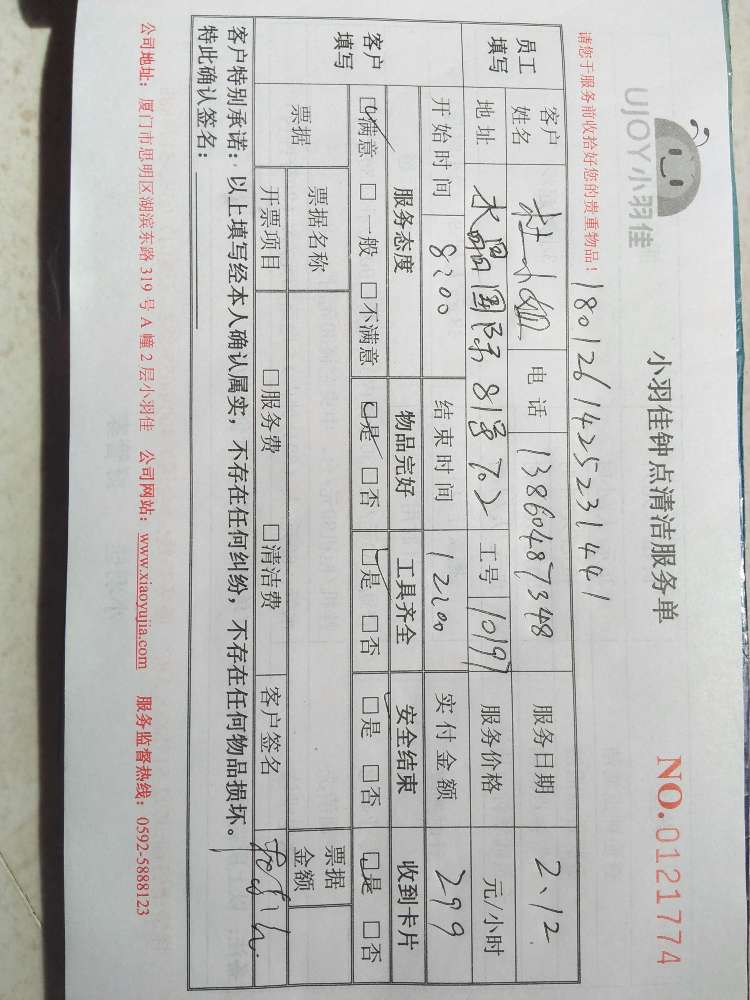 UJOY小羽佳
小羽佳钟点清洁服务单
NO.0121774
请您于服务前收拾好您的贵重物品！
1801261425231441
员工填写 客户姓名 杜小姐 电话 13860487348 服务日期 2、12
地址 水晶国际 81号702 工号 10197 服务价格 元/小时
开始时间 8:00 结束时间 12:00 实付金额 299
客户填写 服务态度 物品完好 工具齐全 安全结束 收到卡片
☑满意 □一般 □不满意 ☑是 □否 ☑是 □否 ☑是 □否 ☑是 □否
票据 票据名称 票据金额
开票项目 □服务费 □清洁费 客户签名
客户特别承诺：以上填写经本人确认属实，不存在任何纠纷，不存在任何物品损坏。
特此确认签名：
公司地址：厦门市思明区湖滨东路 319 号 A 幢 2 层小羽佳 公司网站：www.xiaoyujia.com 服务监督热线：0592-5888123